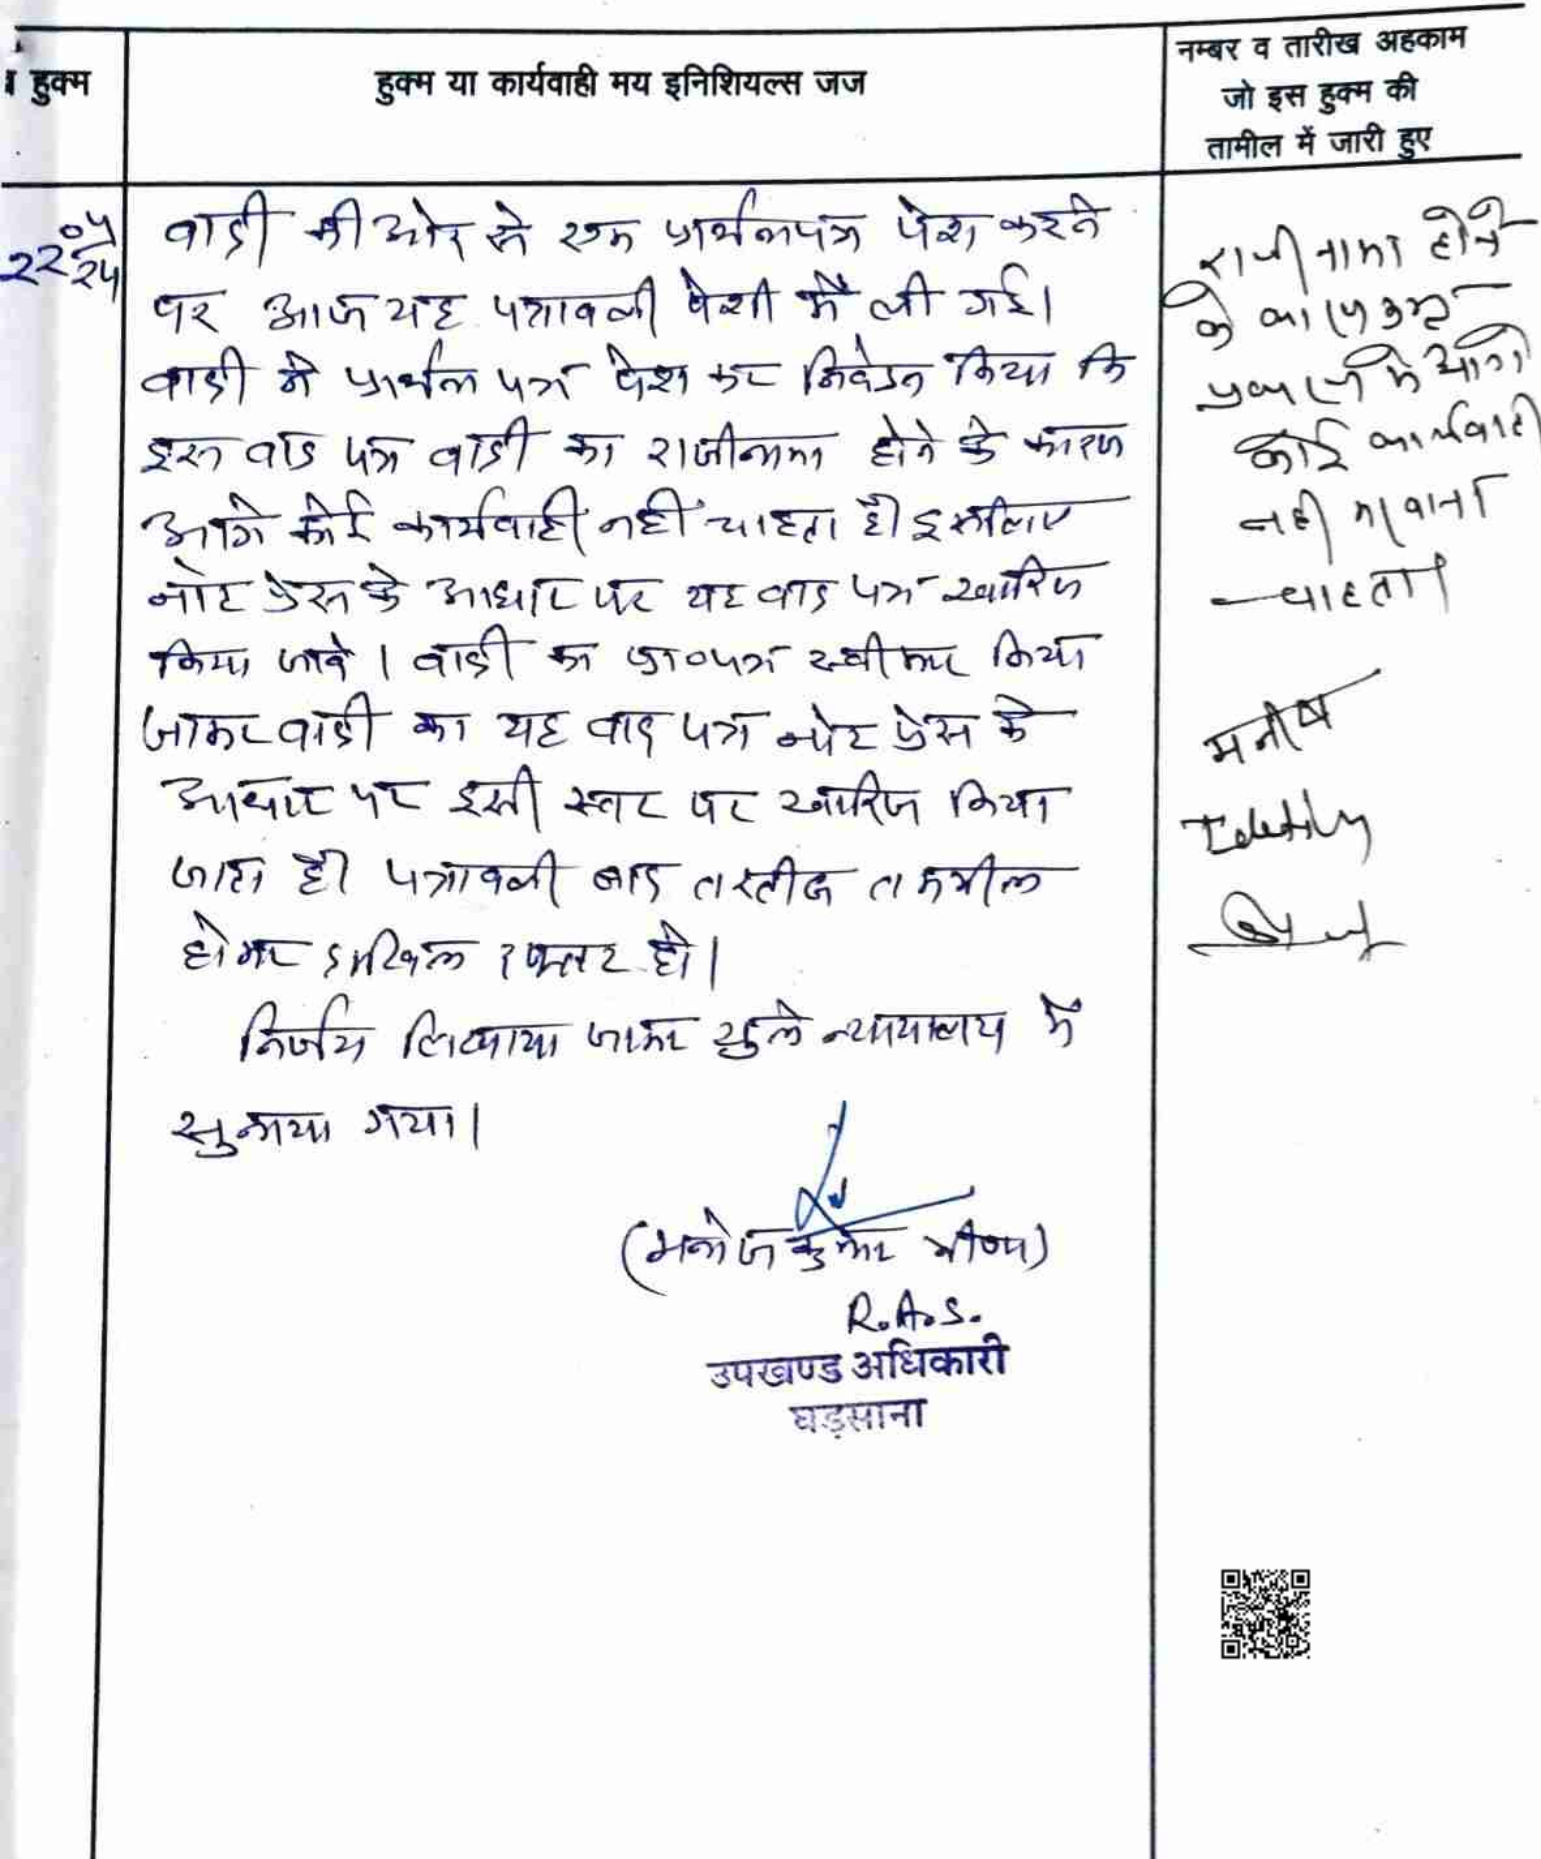 हुक्म
हुक्म या कार्यवाही मय इनिशियल्स जज
नम्बर व तारीख अहकाम
जो इस हुक्म की
तामील में जारी हुए
22
वादी की ओर से एक प्रार्थनापत्र पेश करने
पर आज यह पत्रावली पेशी में ली गई।
वादी ने प्रार्थना पत्र पेश कर निवेदन किया कि
इस वाद पत्र वादी का राजीनामा होने के कारण
आगे कोई कार्यवाही नहीं चाहता है। इसलिए
नोट प्रेस के आधार पर यह वाद पत्र खारिज
किया जावे। वादी का प्रा०पत्र स्वीकार किया
जाकर वादी का यह वाद पत्र नोट प्रेस के
आधार पर इसी स्तर पर खारिज किया
जाता है। पत्रावली बाद तरतीब तकमील
होकर दाखिल दफ्तर हो।
निर्णय लिखाया जाकर खुले न्यायालय में
सुनाया गया।
(मनोज कुमार मीणा)
R.A.S.
उपखण्ड अधिकारी
घड़साना
राजीनामा होने
के कारण
प्रकरण में आगे
कोई कार्यवाही
नही करवाना
चाहता।
मनीष